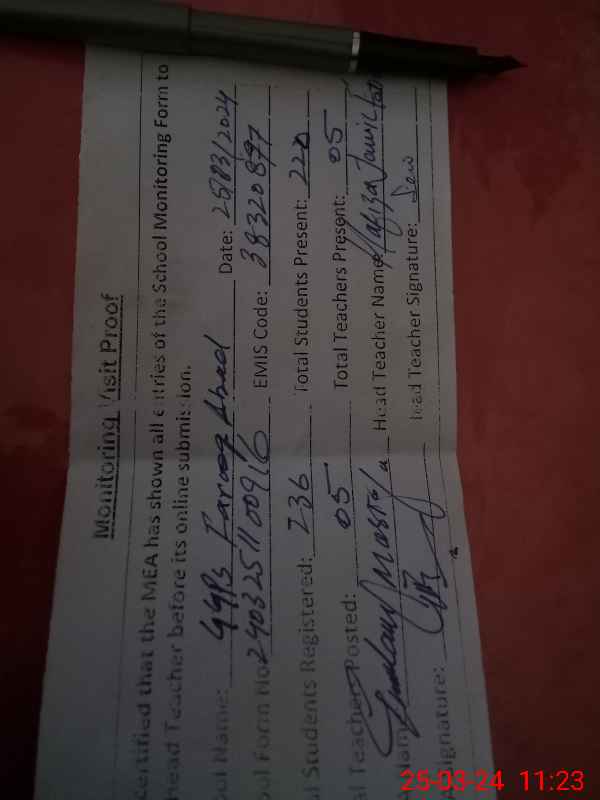 Monitoring Visit Proof
certified that the MEA has shown all entries of the School Monitoring Form to
Head Teacher before its online submission.
ool Name: GGPS Farooq Abad Date: 25/03/2024
ool Form No: 2403251100916 EMIS Code: 38320897
al Students Registered: 236 Total Students Present: 220
al Teacher Posted: 05 Total Teachers Present: 05
Name Mustafa Head Teacher Name: Hafiza
ignature: Head Teacher Signature:
25-03-24 11:23